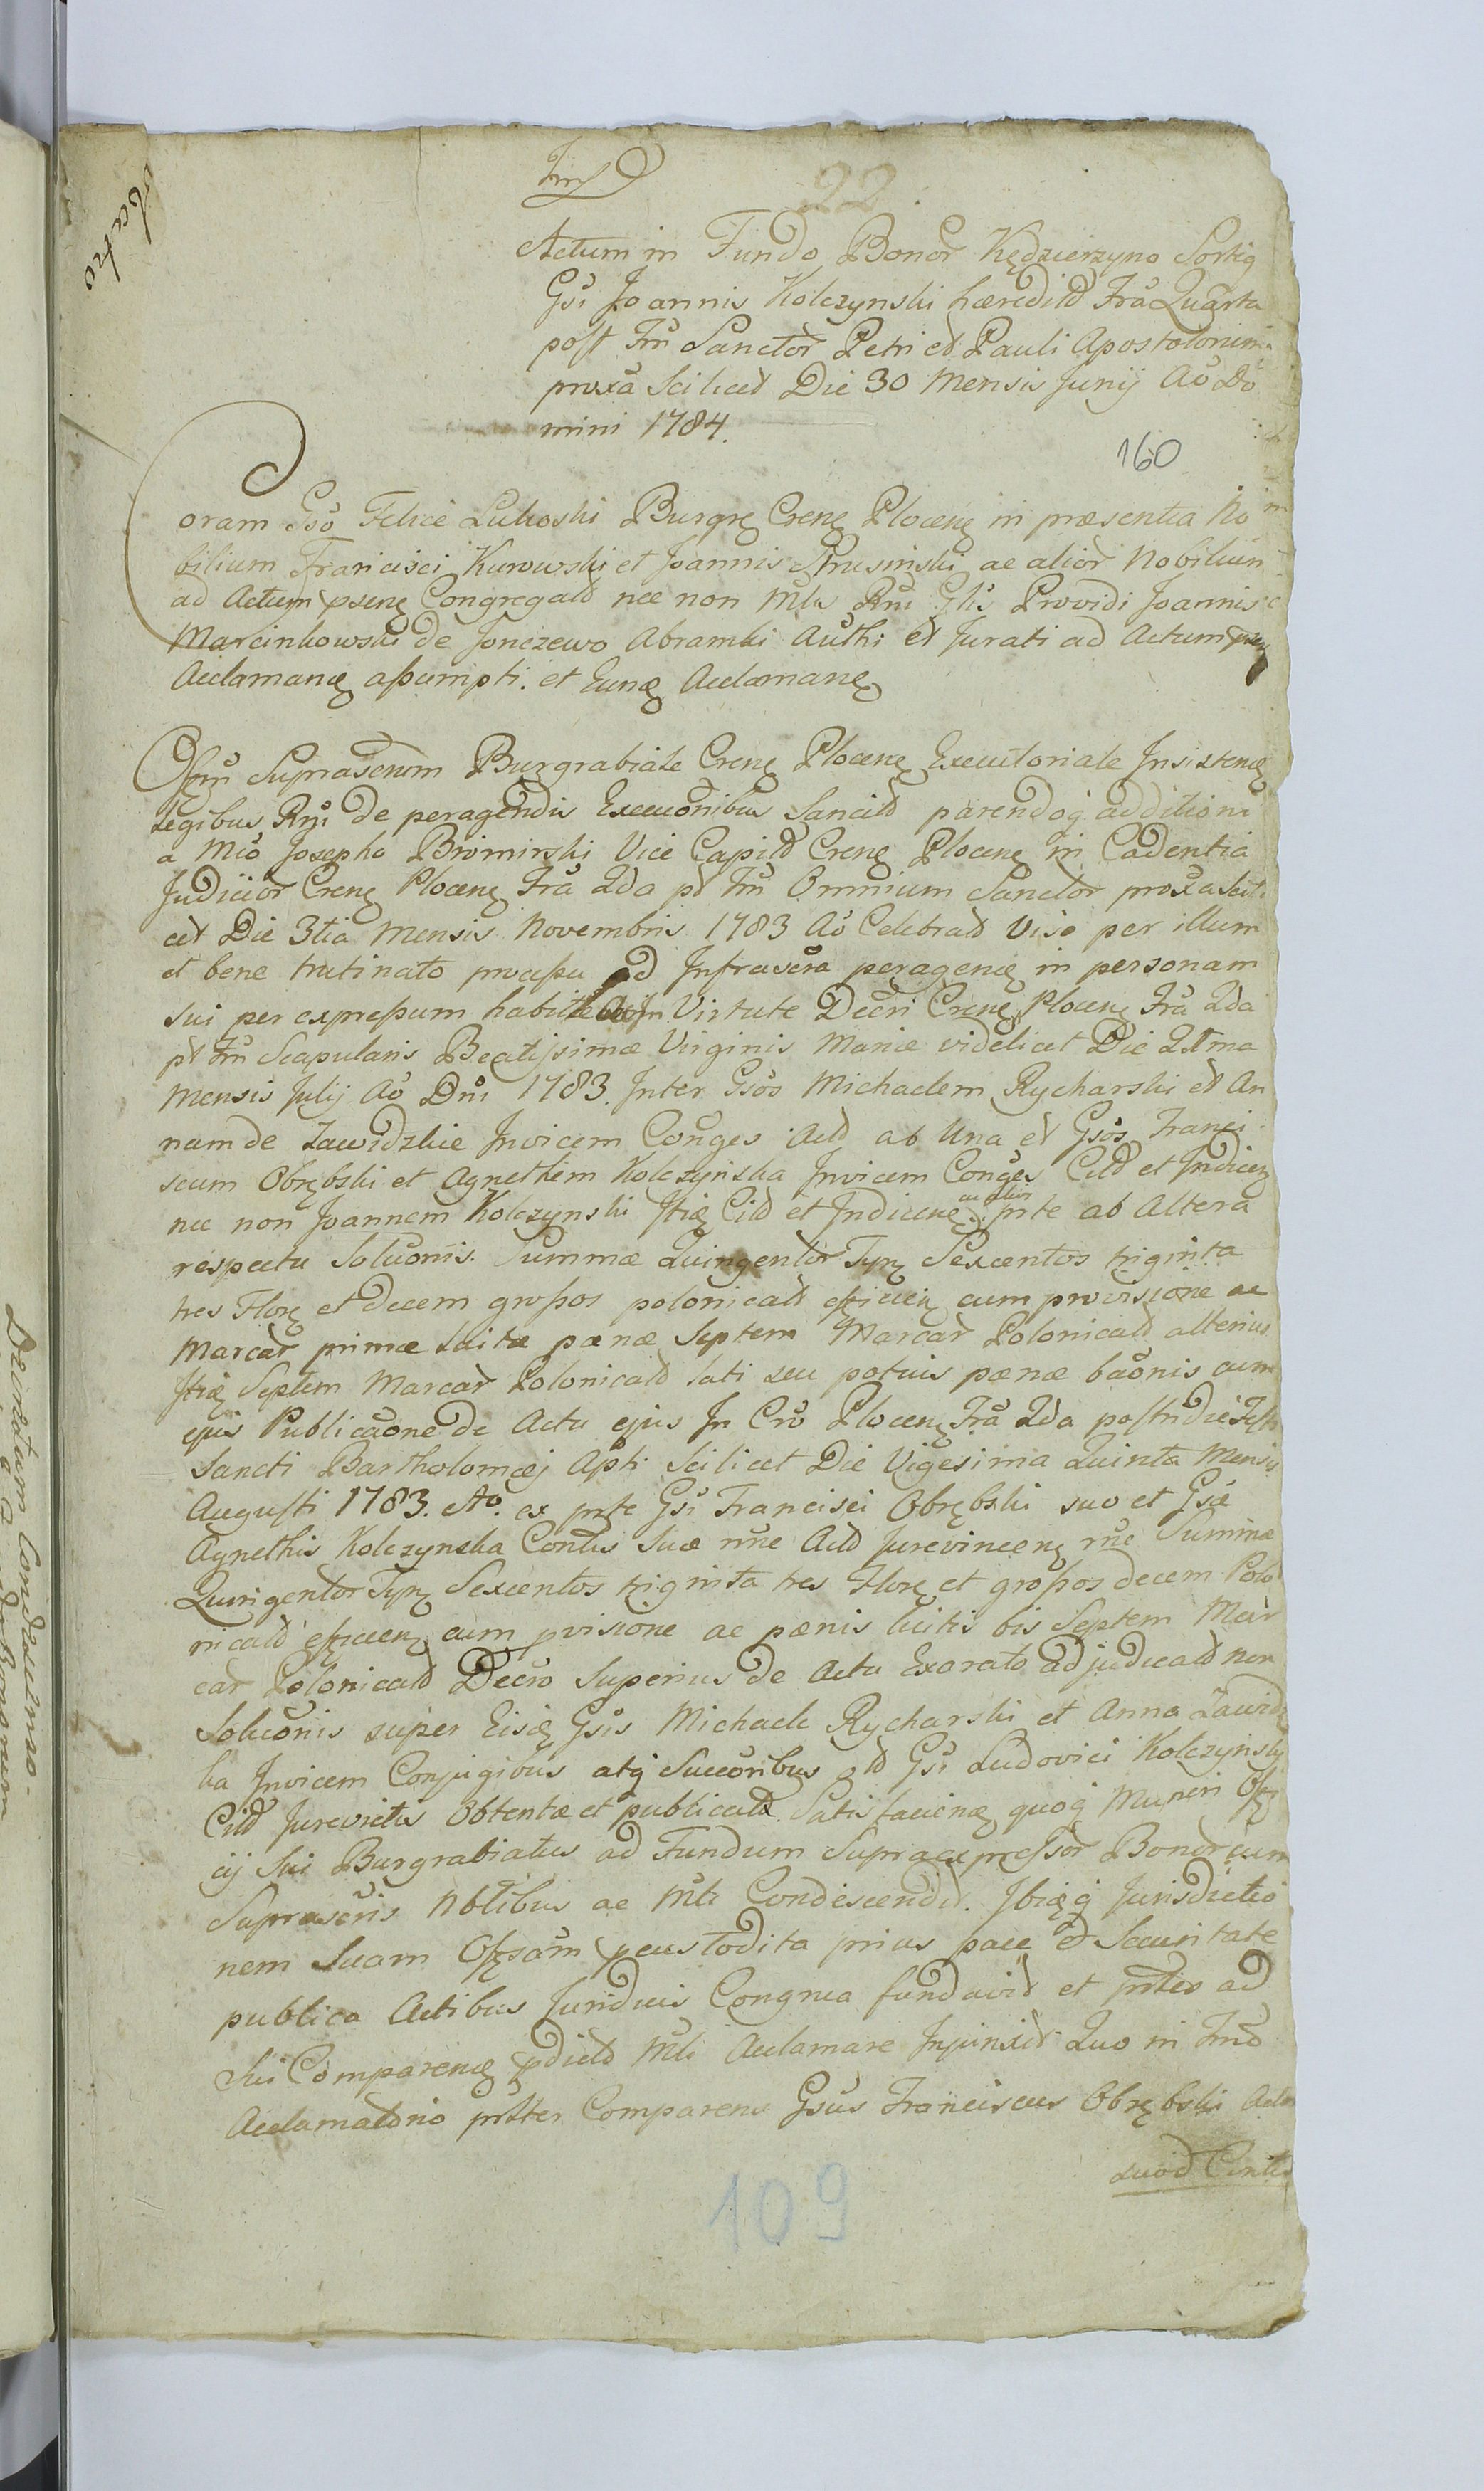 22
Actum in Fundo Bonor Kędzierzyno Sortis
Gsi Joannis Kolczynski hæredit Fra Quarta
post Fm Sanctor Petri et Pauli Apostolorum
proxa Scilicet Die 30 Mensis Junij Ao Do
mini 1784.
160
Coram Gso Felice Lukoski Burgre Crene Plocene in præsentia No
bilium Francisci Kurowski et Joannis Strusinski ac alior Nobilium
ad Actum psene Congregatd nec non Mlis Rni Glis Providi Joannis
Marcinkowski de Jonczewo Abramki Auth: et Jurati ad Actum psen
Acclamane assumpti. et Eune Acclamane
Offm Suprascrum Burgrabiale Crene Plocene Executoriale Insistene
legibus Rni de peragendis Execuonibus Sancitd parendoq additioni
a Mco Josepho Bromirski Vice Capitd Crene Plocene in Cadentia
Judicior Crene Plocene Fra 2da pt Fm Omnium Sanctor proxa Scili
cet Die 3tia Mensis Novembris 1783 Ao Celebratd Viso per illum
et bene trutinato processu ad Infrascra peragene in personam
sui per expressum habite In Virtute Decri Crene Plocene Fra 2da
pt Fm Scapularis Beatissimæ Virginis Mariæ videlicet Die 21ma
Mensis Julij Ao Dni 1783. Inter Gsos Michaelem Rycharski et An
nam de Zawidzkie Invicem Conges Actd ab Una et Gsos Franci
scum Obrębski et Agnethem Kolczynska Invicem Conges Citd et Indicen
nec non Joannem Kolczynski Itie Citd et Indicene ac alior prte ab Altera
respectu Soluonis Summæ Quingentor Tynf Sexcentos triginta
tres Flore et decem grossos polonicald efficien cum provisione ac
Marcar primæ luitæ pænæ Septem Marcar Polonicald alterius
Itie Septem Marcar Polonicald lati seu potius pænæ baonis cum
ejus Publicaone de Actu ejus In Cro Plocen Fra 2da postridie Festi
Sancti Bartholomæj Apti Scilicet Die Vigesima Quinta Mensis
Augusti 1783. Ao. ex prte Gsi Francisci Obrębski suo et Gsæ
Agnethis Kolczynska Contis Suæ nne Actd Jurevincene rne Summæ
Quingentor Tynf Sexcentos triginta tres Flore et grossos decem Polo
nicald efficien cum pvisione ac pænis luitis bis Septem Mar
car Polonicald Decro Superius de Actu Exarato adjudicatd non
Soluonis super Eisde Gsis Michaele Rycharski et Anna Zawidz
ka Invicem Conjugibus atq Succoribus old Gsi Ludovici Kolczynski
Citd Jurevictis Obtentæ et publicatæ Satisfaciene quoq Muneri Offi
cij Sui Burgrabiatus ad Fundum Supraexpressor Bonor cum
Suprascris Nobilibus ac Mli Condescendit. Ibiq Jurisdictio
nem Suam Offosam pcustodita prius pace et Securitate
publica Actibus Juridicis Congrua fundavit et prtes ad
Sui Comparene pdictd Mli Acclamare Injunxit Quo in Tmo
Acclamatorio prtter Comparens Gsus Franciscus Obrębski Actor
suo et Contis
109
Decretum Condescenso